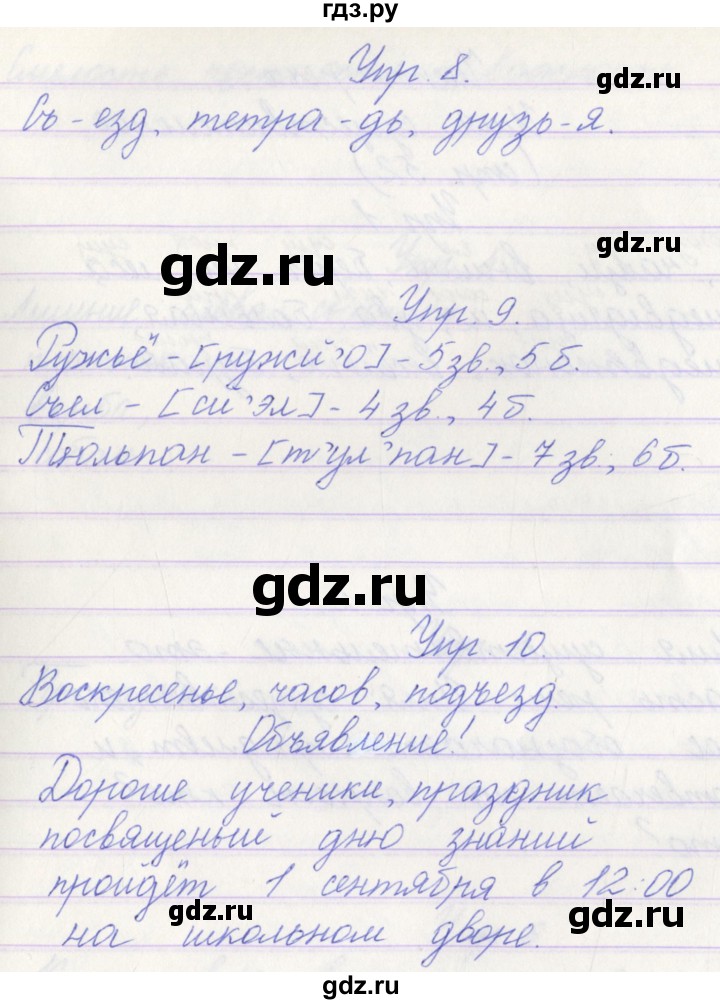 гдз.ру
Упр. 8.
gdz.ru
Съ-езд, тетра-дь, друзь-я.
gdz.ru
gdz.ru
Упр. 9.
Ружьё - [ружй'О] - 5 зв., 5 б.
Съел - [сй'эл] - 4 зв., 4 б.
Тюльпан - [т'ул'пан] - 7 зв., 6 б.
gdz.ru
Упр. 10.
Воскресенье, часов, подъезд.
Объявление!
Дорогие ученики, праздник
посвященый дню знаний
пройдёт 1 сентября в 12:00
gdz.ru
gdz.ru
на школьном дворе.
gdz.ru